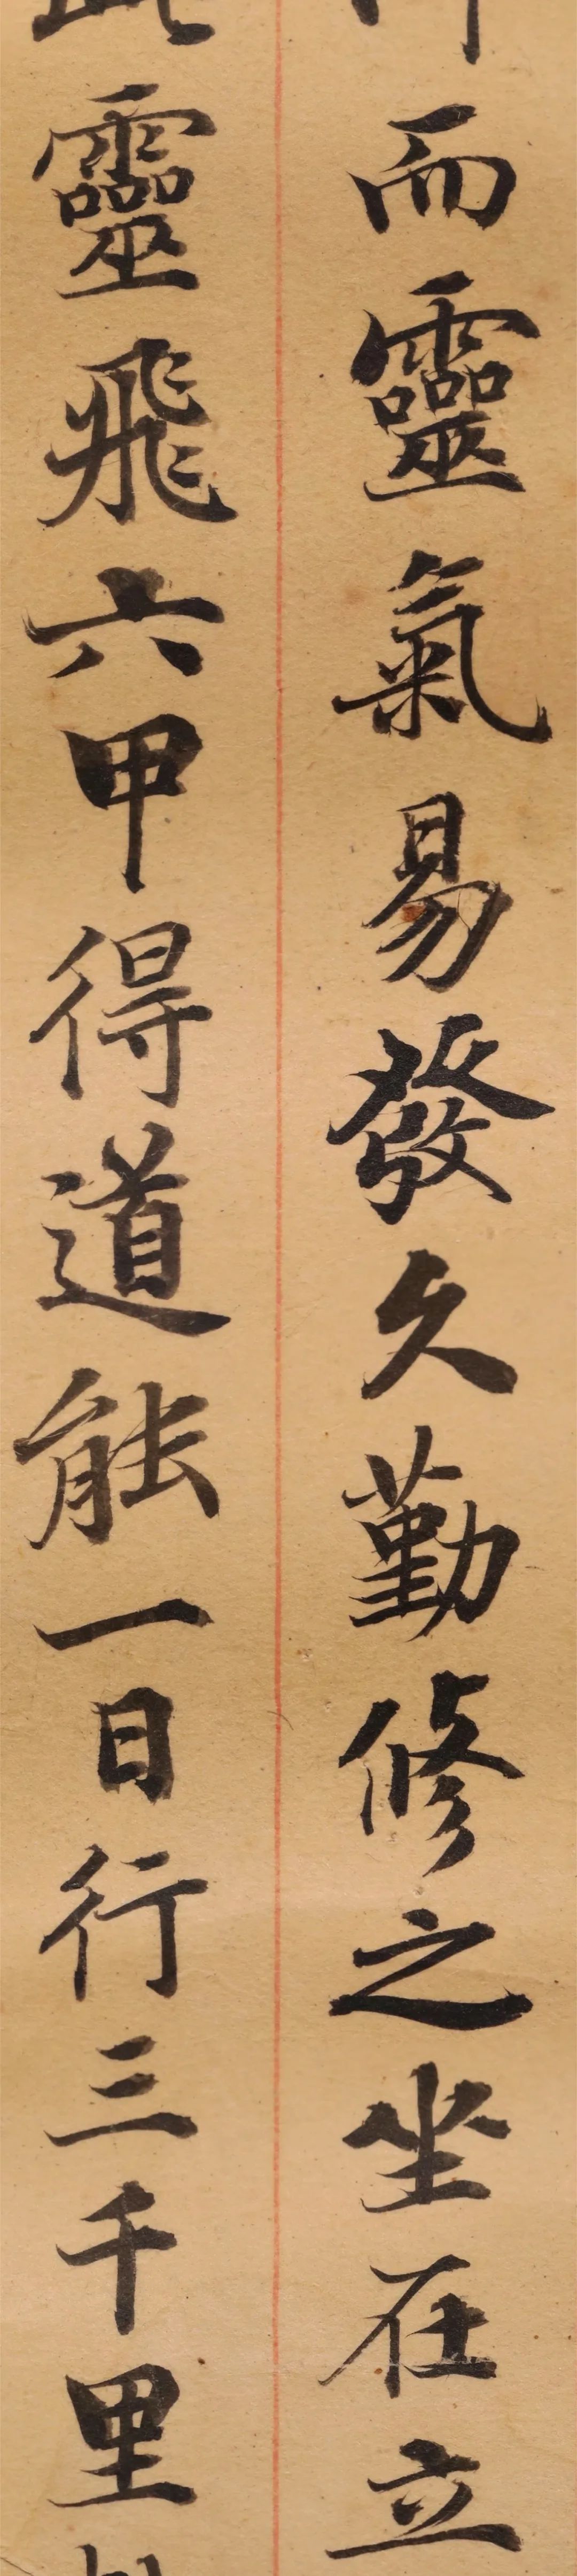 而靈氣易發久勤修之坐在立
靈飛六甲得道能一日行三千里